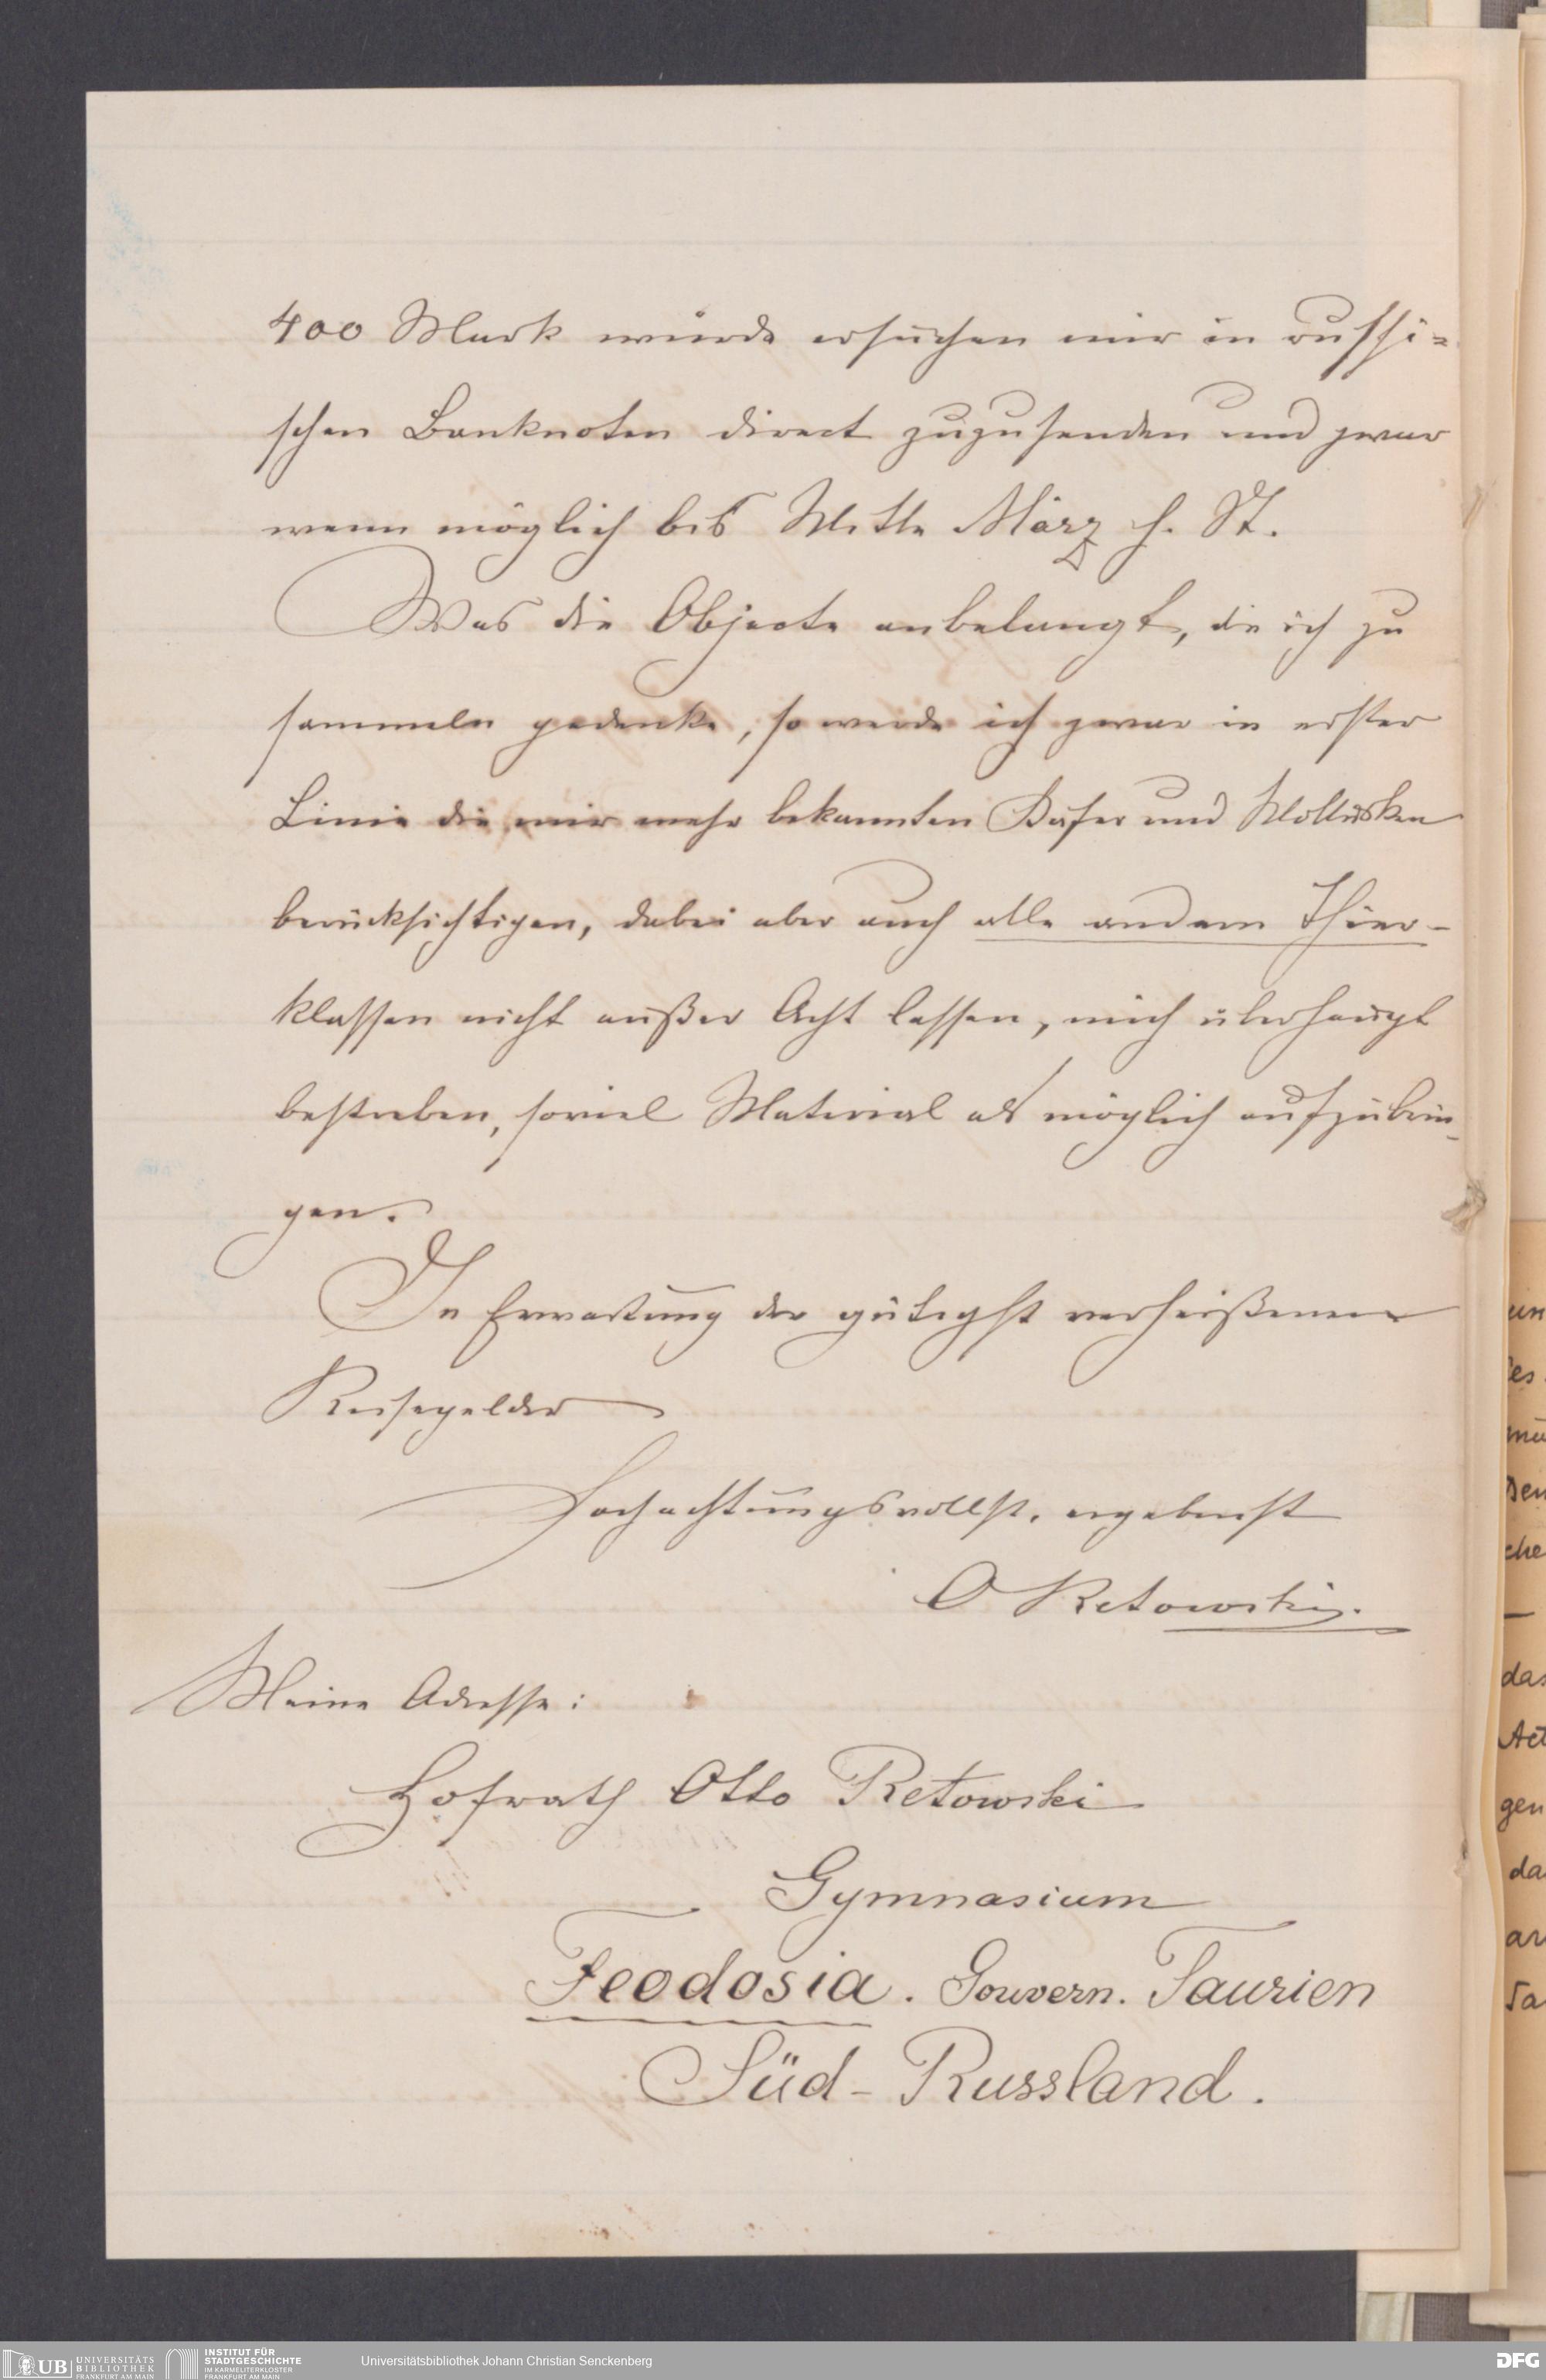 400 Mark würde ersuchen mir in russi=
schen Banknoten direct zuzusenden und zwar
wenn möglich bis Mitte März h. St.
Was die Objecte anbelangt, die ich zu
sammeln gedenke, so werde ich zwar in erster
Linie die mir mehr bekannten Käfer und Mollusken
berücksichtigen, dabei aber auch alle andern Thier-
klassen nicht außer Acht lassen, mich überhaupt
bestreben, soviel Material als möglich aufzubrin-
gen.
In Erwartung der gütigst verheißenen
Reisegelder
Hochachtungsvollst. ergebenst
O Retowski.
Meine Adresse:
Hofrath Otto Retowski
Gymnasium
Feodosia. Gouvern. Taurien
Süd-Russland.
UB UNIVERSITÄTS BIBLIOTHEK FRANKFURT AM MAIN
INSTITUT FÜR STADTGESCHICHTE IM KARMELITERKLOSTER FRANKFURT AM MAIN
Universitätsbibliothek Johann Christian Senckenberg
DFG